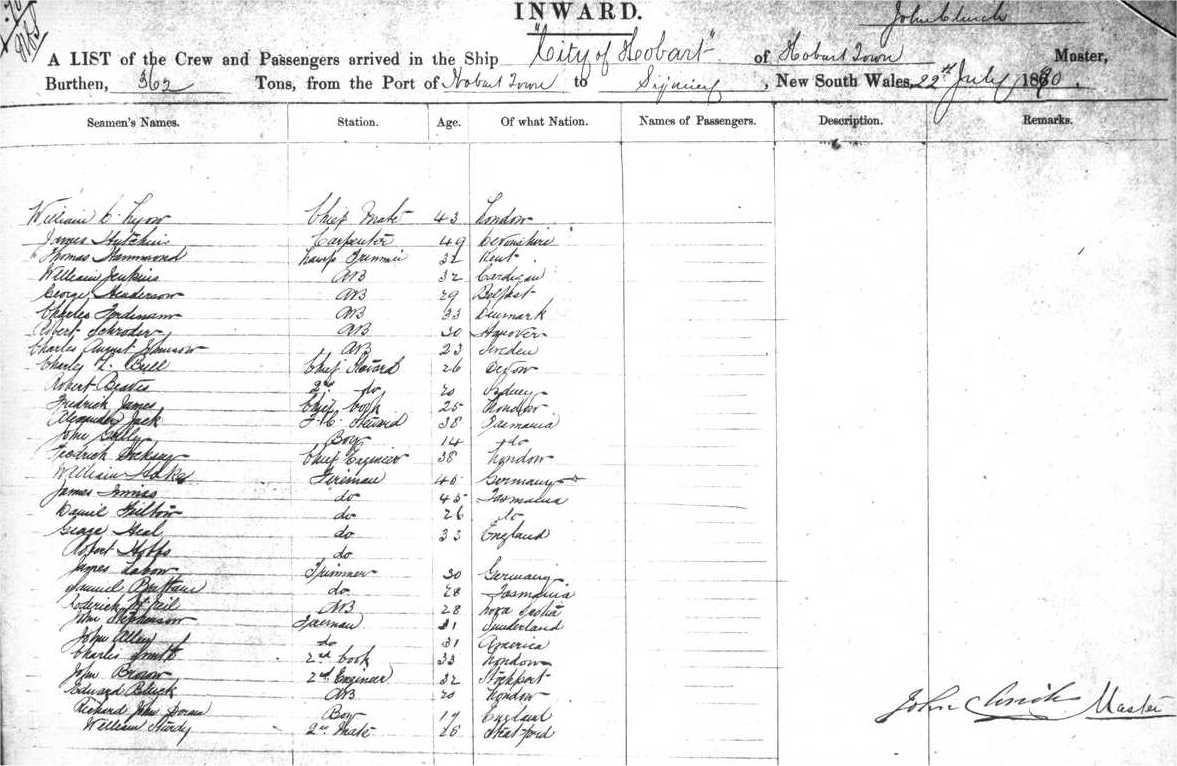 INWARD.
John Clinch
A LIST of the Crew and Passengers arrived in the Ship "City of Hobart" of Hobart Town Master,
Burthen, 362 Tons, from the Port of Hobart Town to Sydney, New South Wales, 22nd July 1870.
Seamen's Names. Station. Age. Of what Nation. Names of Passengers. Description. Remarks.
William Chief Mate 43 London
James Carpenter 49 Devonshire
Thomas Hammond Lamp Trimmer 32 Kent
William Jenkins AB 32 Cardigan
George Henderson AB 29 Belfast
Charles AB 33 Denmark
Albert Schroder AB 30 Hanover
Charles August AB 23 Sweden
Charley Bull Chief Steward 26
Robert 2nd do 20 Sydney
Fredrick James Chief Cook 25 London
Alexander Jack F. C. Steward 38 Tasmania
John Boy 14 do
Fredrick Chief Engineer 38 London
William Fireman 40 Germany
James do 45 Tasmania
Daniel do 26 do
George Heal do 33 England
Robert do
James Trimmer 30 Germany
Samuel do 28 Tasmania
AB 28 Nova Scotia
Fireman 31 Sunderland
John do 31 America
Charles Smith 2nd Cook 31 London
John Brown 2nd Engineer 32 Stockport
Edward AB 20 London
Richard John Boy 17 England
William Sturdy 2nd Mate 28
John Clinch Master